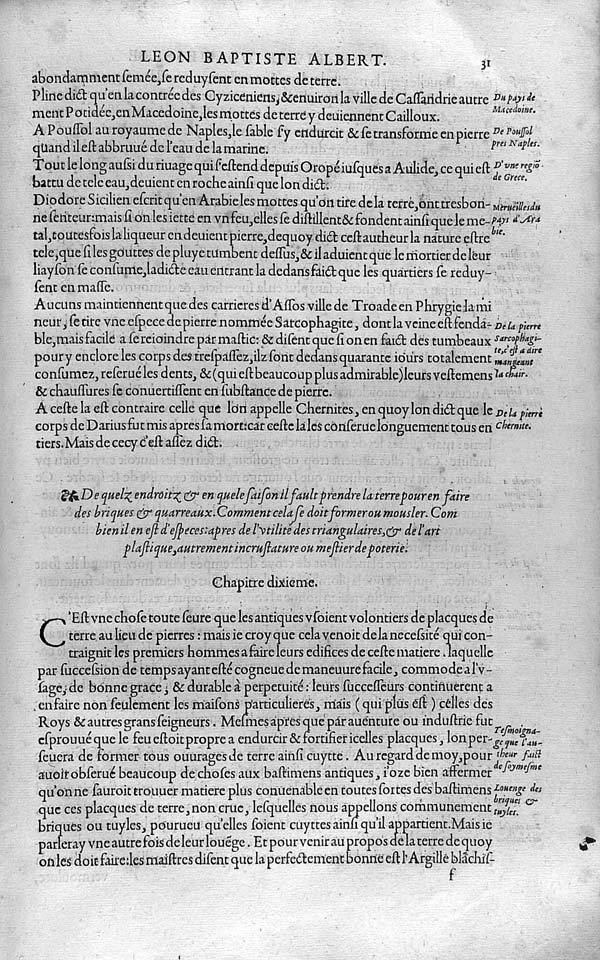 LEON BAPTISTE ALBERT. 31
abondamment semée, se reduysent en mottes de terre.
Pline dict qu'en la contrée des Cyziceniens, & enuiron la ville de Cassandrie autre
ment Potidée, en Macedoine, les mottes de terre y deuiennent Cailloux.
Du pays de
Macedoine.
A Poussol au royaume de Naples, le sable s'y endurcit & se transforme en pierre
quand il est abbruué de l'eau de la marine.
De Poussol
pres Naples.
Tout le long aussi du riuage qui s'estend depuis Oropé iusques a Aulide, ce qui est
battu de tele eau, deuient en roche ainsi que lon dict.
D'vne regiō
de Grece.
Diodore Sicilien escrit qu'en Arabie les mottes qu'on tire de la terre, ont tresbon-
ne senteur: mais si on les iette en vn feu, elles se distillent & fondent ainsi que le me-
tal, toutesfois la liqueur en deuient pierre, dequoy dict cest autheur la nature estre
tele, que si les gouttes de pluye tumbent dessus, & il aduient que le mortier de leur
liayson se consume, ladicte eau entrant la dedans faict que les quartiers se reduy-
sent en masse.
Merueilles du
pays d'Ara
bie.
Aucuns maintiennent que des carrieres d'Assos ville de Troade en Phrygie la mi
neur, se tire vne espece de pierre nommée Sarcophagite, dont la veine est fenda-
ble, mais facile a se reioindre par mastic: & disent que si on en faict des tumbeaux
pour y enclorre les corps des trespassez, ilz sont dedans quarante iours totalement
consumez, reserué les dents, & (qui est beaucoup plus admirable) leurs vestemens
& chaussures se conuertissent en substance de pierre.
De la pierre
Sarcophagi-
te, c'est a dire
mangeant
la chair.
A ceste la est contraire celle que lon appelle Chernites, en quoy lon dict que le
corps de Darius fut mis apres sa mort: car ceste la les conserue longuement tous en
tiers. Mais de cecy c'est assez dict.
De la pierre
Chernite.
De quelz endroitz & en quele saison il fault prendre la terre pour en faire
des briques & quarreaux. Comment cela se doit former ou mousler. Com
bien il en est d'especes: apres de l'vtilité des triangulaires, & de l'art
plastique, autrement incrustature ou mestier de poterie.
Chapitre dixieme.
C'Est vne chose toute seure que les antiques vsoient volontiers de placques de
terre au lieu de pierres: mais ie croy que cela venoit de la necessité qui con-
traignit les premiers hommes a faire leurs edifices de ceste matiere. laquelle
par succession de temps ayant esté cogneue de maneuure facile, commode a l'v-
sage, de bonne grace, & durable à perpetuité: leurs successeurs continuerent a
en faire non seulement les maisons particulieres, mais (qui plus est) celles des
Roys & autres grans seigneurs. Mesmes apres que par auenture ou industrie fut
esprouué que le feu estoit propre a endurcir & fortifier icelles placques, lon per-
seuera de former tous ouurages de terre ainsi cuytte. Au regard de moy, pour
auoit obserué beaucoup de choses aux bastimens antiques, i'oze bien affermer
Tesmoigna-
ge que l'au-
theur faict
de soymesme
qu'on ne sauroit trouuer matiere plus conuenable en toutes sortes des bastimens
que ces placques de terre, non crue, lesquelles nous appellons communement
briques ou tuyles, pourueu qu'elles soient cuyttes ainsi qu'il appartient. Mais ie
Louenge des
briques &
tuyles.
parleray vne autre fois de leur louēge. Et pour venir au propos de la terre de quoy
on les doit faire: les maistres disent que la perfectement bonne est l'Argille blāchis-
f